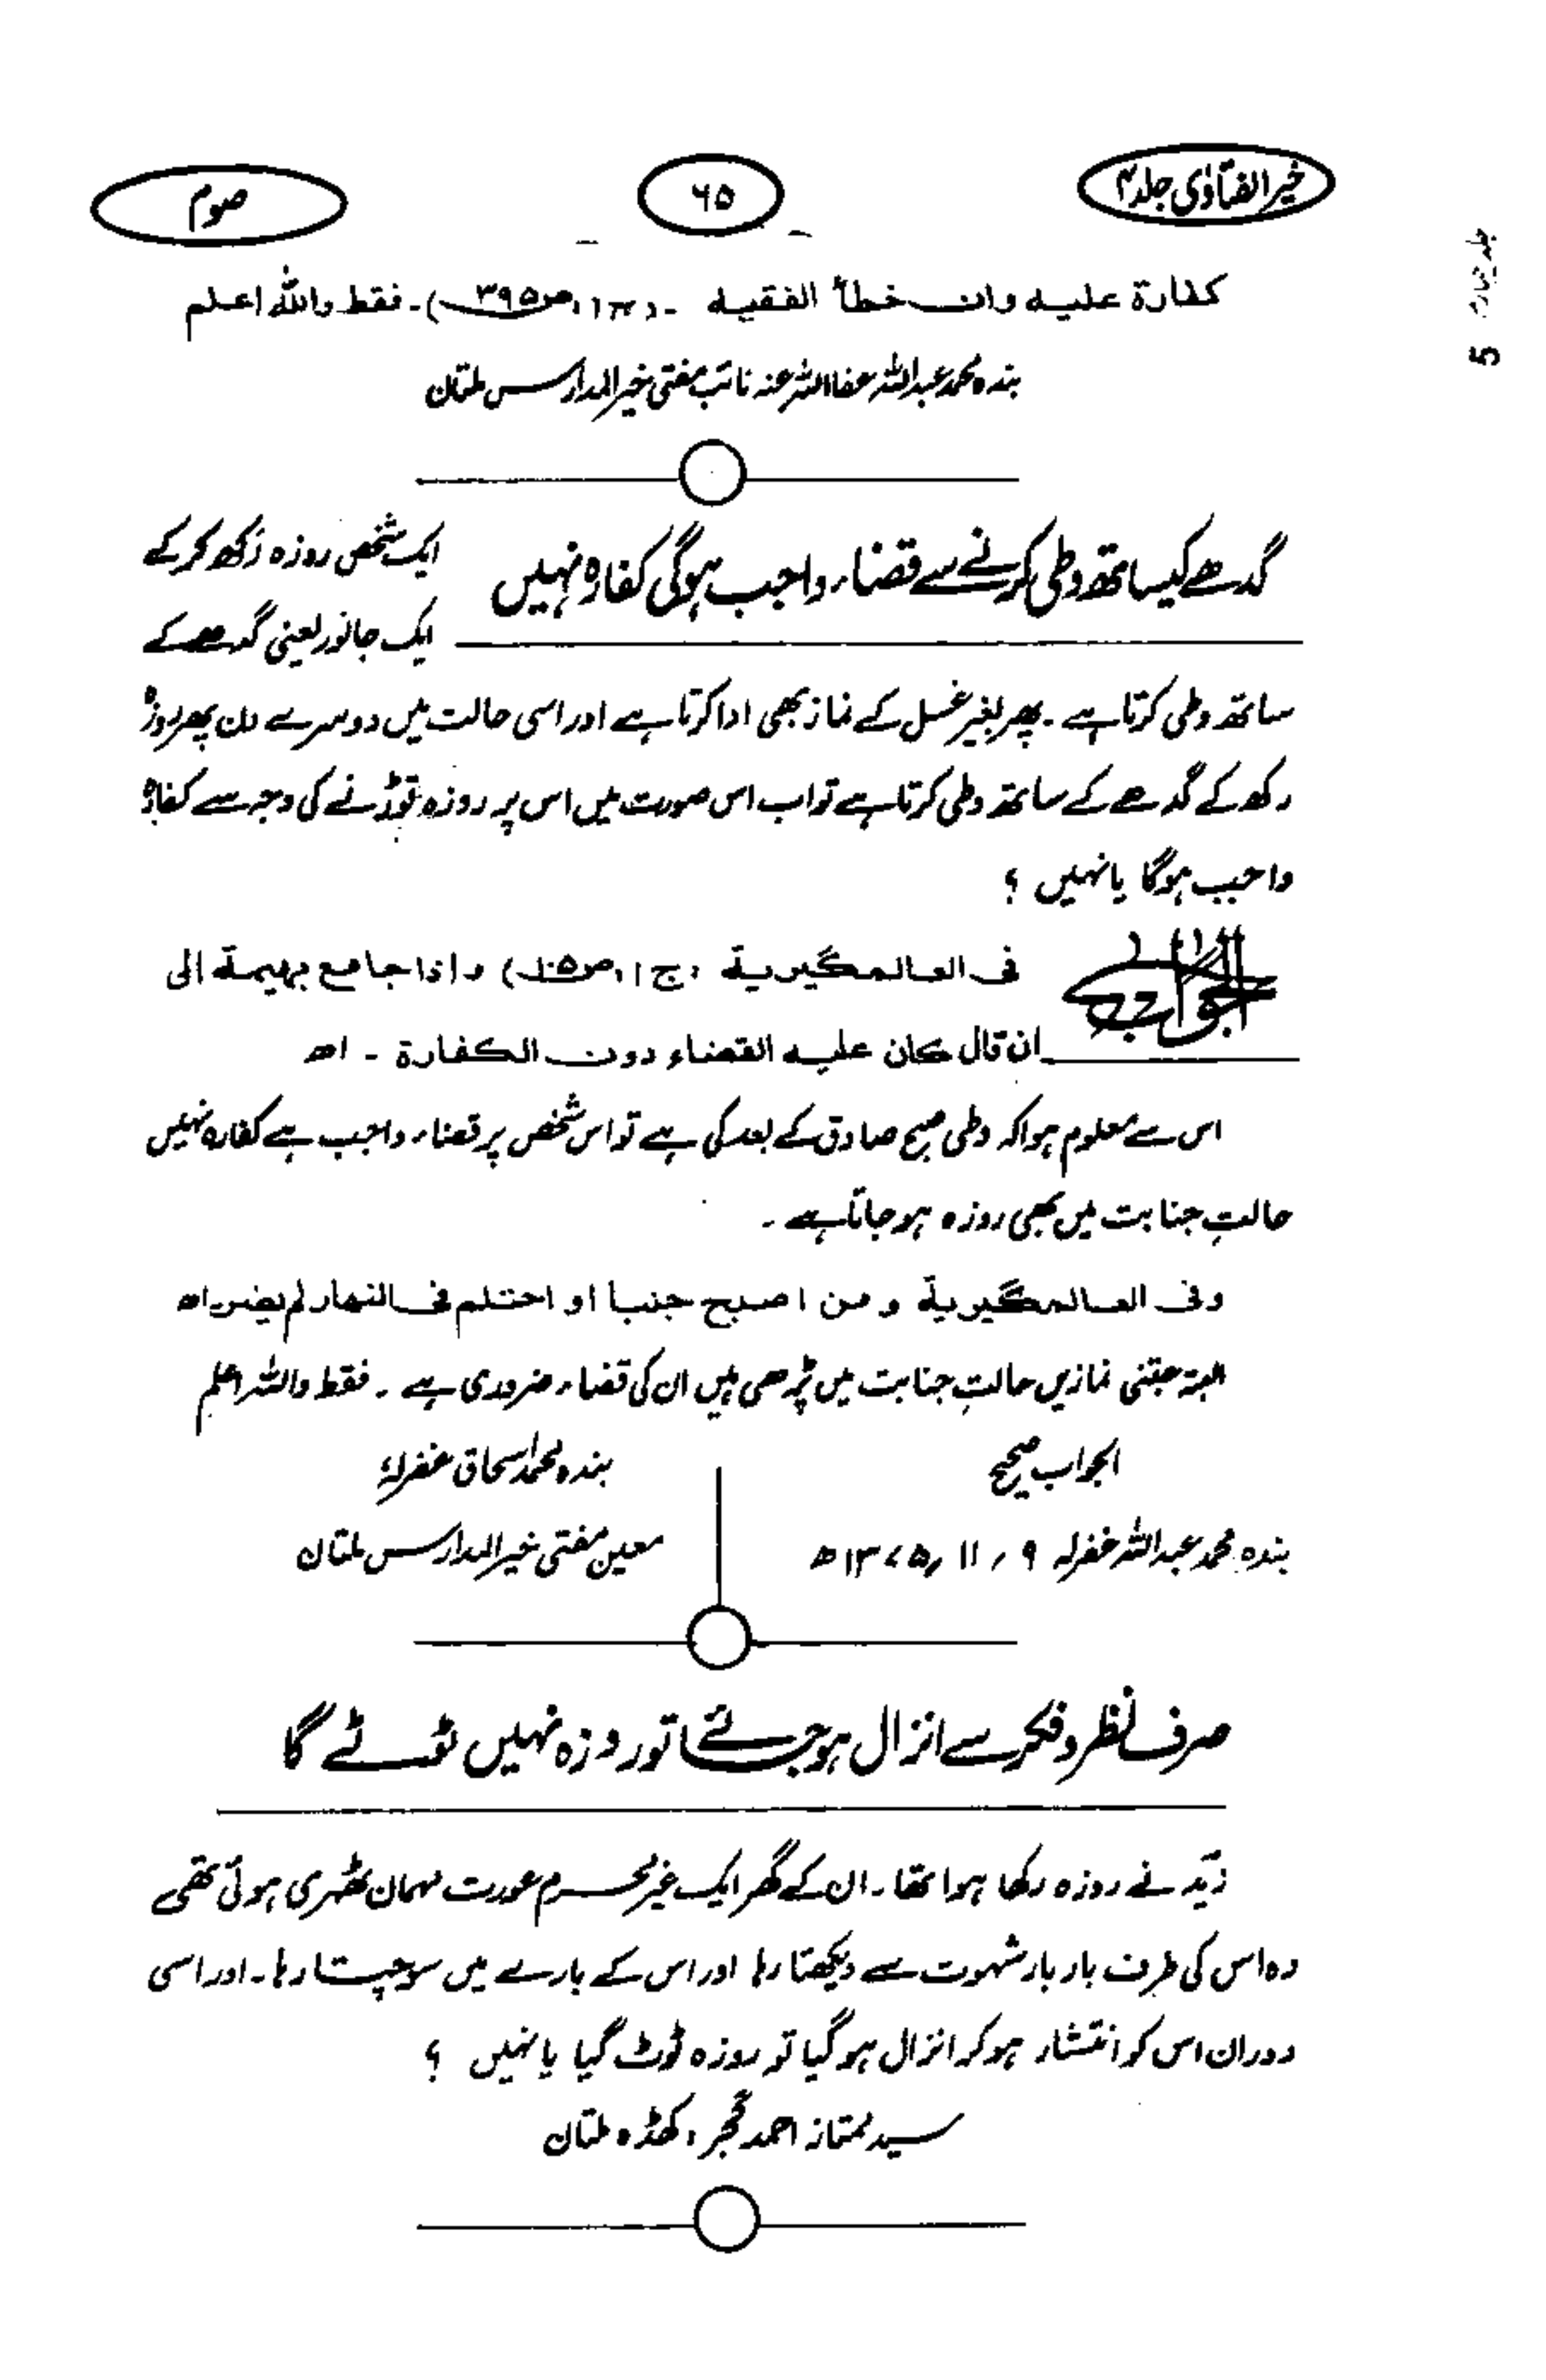 خیر الفتاوٰی جلد ۴
۶۵
صوم
کفارة علیه وان خطأ الفقیه ۔ (ج۱، ص۳۹۵)۔ فقط واللہ اعلم
بندہ محمد عبداللہ عفا اللہ عنہ نائب مفتی خیر المدارس ملتان
گدھے کیساتھ وطی کرنے سے قضاء واجب ہوگی کفارہ نہیں
ایک شخص روزہ رکھ کر کے
ایک جانور یعنی گدھے کے
ساتھ وطی کرتا ہے ۔ پھر بغیر غسل کے نماز بھی ادا کرتا ہے اور اسی حالت میں دوسرے دن پھر روزہ
رکھ کے گدھے کے ساتھ وطی کرتا ہے تو اب اس صورت میں اس پر روزہ توڑنے کی وجہ سے کفارہ
واجب ہوگا یا نہیں ؟
الجواب
فی العالمگیریة (ج۱، ص۱۰۵) واذا جامع بهیمة الی
ان قال کان علیه القضاء دون الکفارة ۔ اھ
اس سے معلوم ہوا کہ وطی صبح صادق کے بعد کی ہے تو اس شخص پر قضاء واجب ہے کفارہ نہیں
حالتِ جنابت میں بھی روزہ ہو جاتا ہے ۔
وفی العالمگیریة و من اصبح جنبا او احتلم فی النهار لم یضرہ اھ
البتہ جتنی نمازیں حالتِ جنابت میں پڑھی ہیں ان کی قضاء ضروری ہے ۔ فقط واللہ اعلم
الجواب صحیح
بندہ محمد عبداللہ غفرلہ ۹ / ۱۱ / ۱۳۷۵ھ
بندہ محمد اسحاق غفرلہٗ
معین مفتی خیر المدارس ملتان
صرف نظر و فکر سے انزال ہو جائے تو روزہ نہیں ٹوٹے گا
زید نے روزہ رکھا ہوا تھا ۔ ان کے گھر ایک غیر محرم عورت مہمان ٹھہری ہوئی تھی
وہ اس کی طرف بار بار شہوت سے دیکھتا رہا اور اس کے بارے میں سوچتا رہا ۔ اور اسی
دوران اس کو انتشار ہو کر انزال ہو گیا تو روزہ ٹوٹ گیا یا نہیں ؟
سید ممتاز احمد گجر کھڈہ ملتان
5